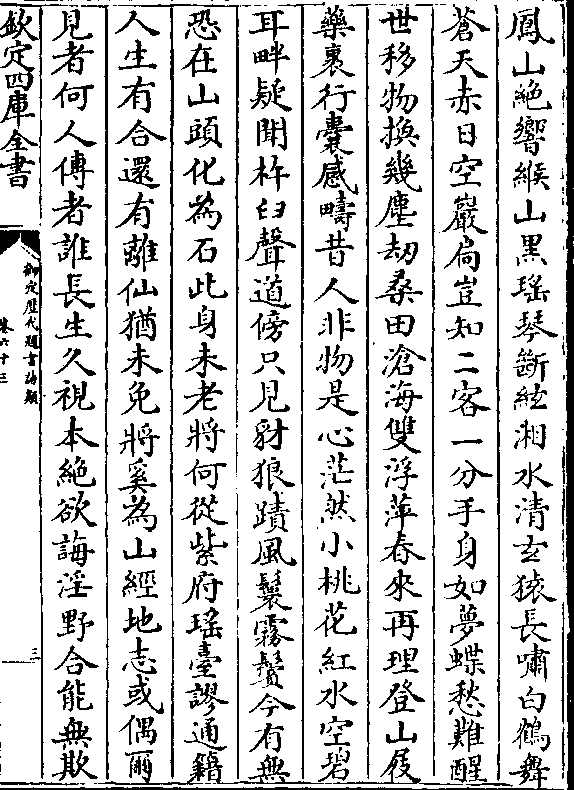 鳳山絶響緱山黑瑶琴斷絃湘水清玄猿長嘯白鶴舞
蒼天赤日空巖扃豈知二客一分手身如夢蝶愁難醒
世移物換幾塵刼桑田滄海雙浮萍春來再理登山屐
藥裹行囊感疇昔人非物是心茫然小桃花紅水空碧
耳畔疑聞杵臼聲道傍只見豺狼蹟風鬟霧鬢今有無
恐在山頭化為石此身未老將何從紫府瑶臺謬通籍
人生有合還有離仙猶未免將奚為山經地志或偶爾
見者何人傳者誰長生久視本絶欲誨淫野合能無欺
欽定四庫全書
御定歷代題畫詩類
卷六十三
三